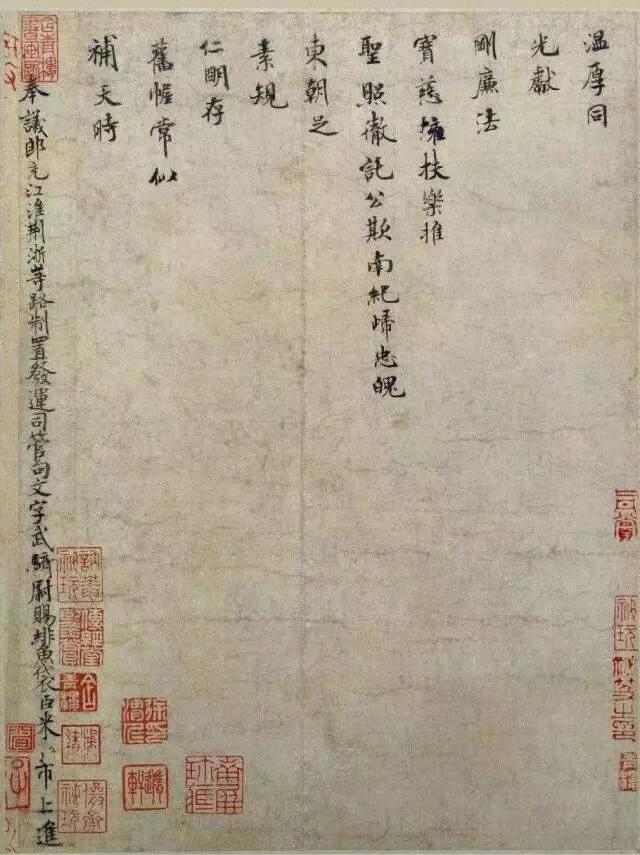 溫厚同
光獻
剛廉法
寶慈擁扶樂推
聖照徹託公欺南紀歸忠魄
東朝足
素規
仁明存
舊幄常似
補天時
奉議郎充江淮荊浙等路制置發運司管句文字武騎尉賜緋魚袋臣米芾上進